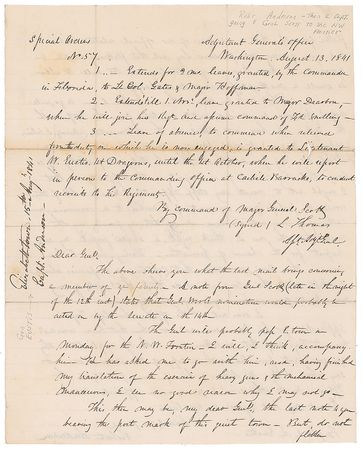 Special Orders
No. 57.
Adjutant General's Office
Washington August 13, 1841
1. Extends for 2 mos. leave, granted by the commander
in Florida, to Lt Col. Gates & Major Hoffman
2. Extends till 1 Nov. leave granted to Major Dearborn,
when he will join his Regt. and assume command of Fd. Snelling
3. Leave of absence to commence when relieved
from duty on which he is now engaged, is granted to Lieutenant
W. Eustis, 1st Dragoons, until the 1st October, when he will report
in person to the Commanding officer at Carlisle Barracks, to conduct
recruits to the Regiment.
By command of Major General Scott
(Signed) L. Thomas
Dear Genl.
The above shows you what the last mail brings concerning
a member of yr family. A note from Genl Scott (late in the night
of the 12th inst) states that Genl. Worth's nomination would probably be
acted on by the Senate on the 14th
The Genl will probably pass thro town on
Monday for the N.W. Frontier. I will, I think, accompany
him. He has asked me to go with him, and, having finished
my translation of the exercise of heavy guns & the mechanical
manoeuvres, I see no good reason why I may not go.
This then may be, my dear Genl, the last note
bearing the post mark of this quiet town. But, do not
flatter
Elizabethtown, 15th Aug 1841
Capt. Anderson